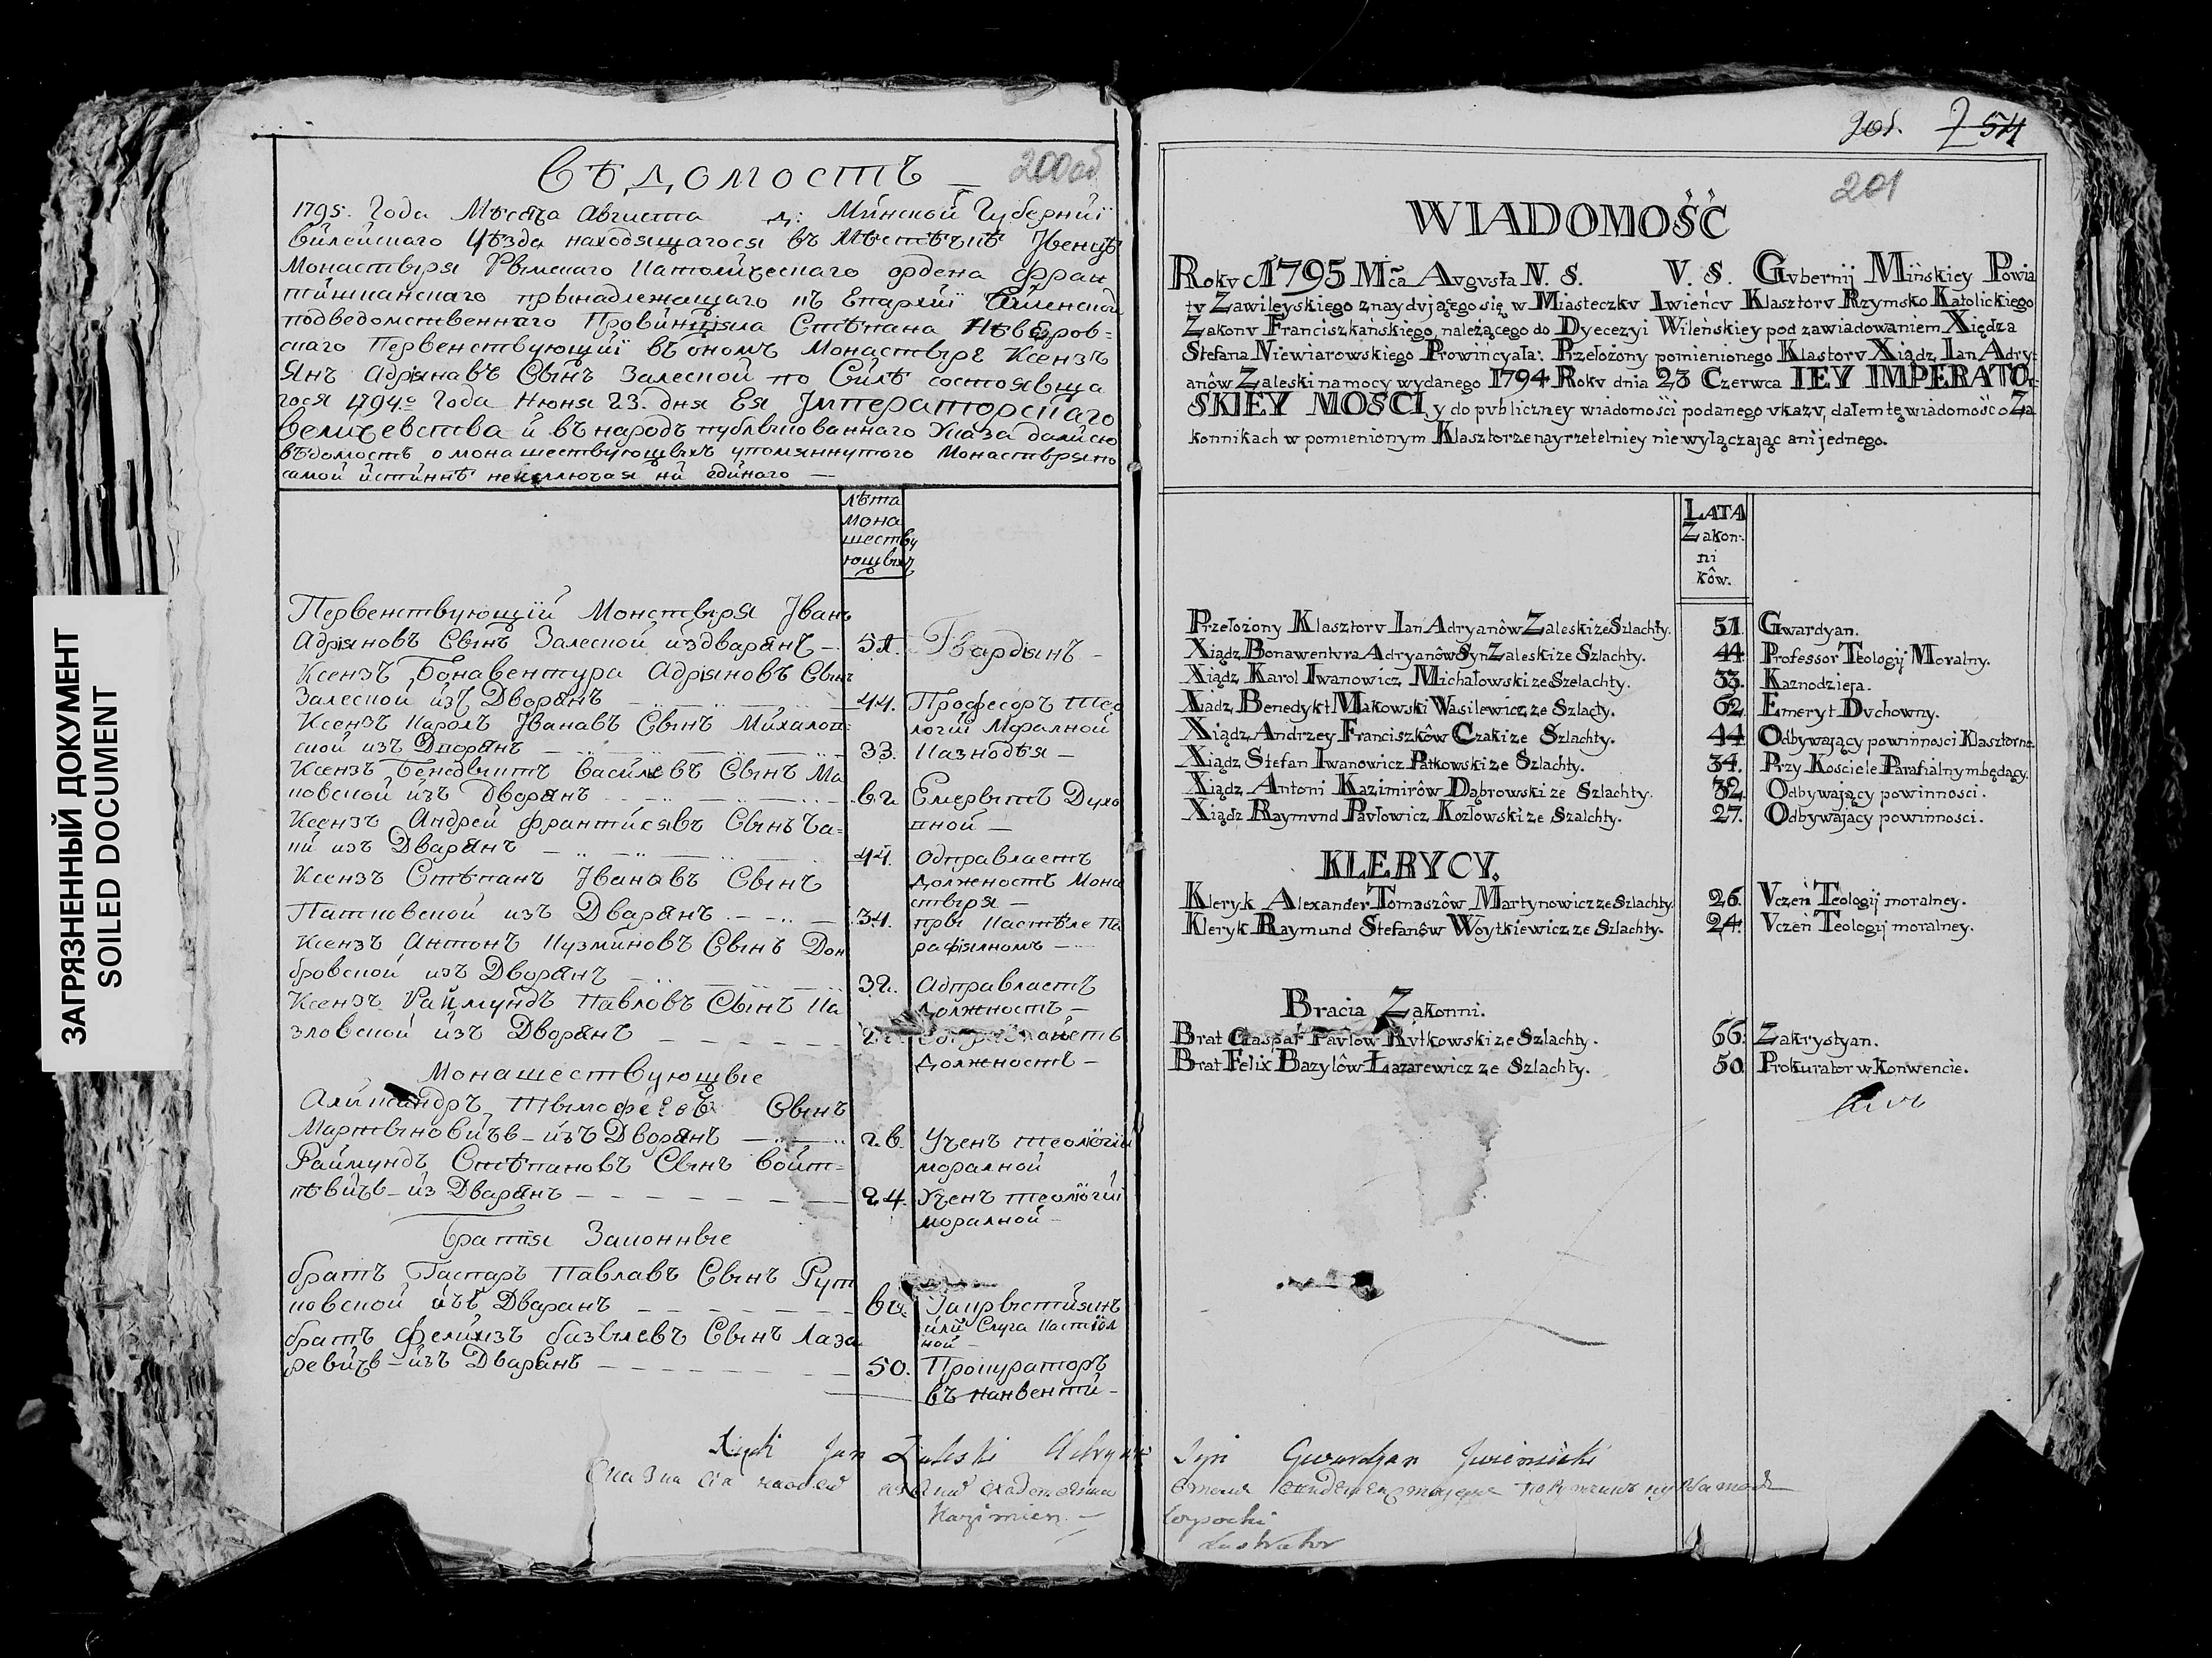 ЗАГРЯЗНЕННЫЙ ДОКУМЕНТ
SOILED DOCUMENT
вѣдомость
200об
1795. Года Мѣсяца Августа д: Минской Губерниї
вилейскаго Цѣзда находящагося въ Мѣстѣчкѣ Ӏвенцѣ
Монастыря Рымскаго Католическаго ордена фран
тишканскаго прынадлежащаго къ Епархиї виленской
подведомственнаго Провинцияла Стѣпана Невѣров-
скаго Первенствующиї въ ономъ Монастырѣ Ксензъ
Янъ Адрянавъ Сынъ Залеской по Силѣ состоявша
гося 1794го Года Июня 23. дня Ея Ӏмператорскаго
величевства и въ народъ публыкованнаго Указа далисю
вѣдомость о монашествующыхъ упомяннутого Монастырято
самой истиннѣ неиключая ни единаго —
лѣта
мона
шеству
ющыхъ
Первенствующїй Монстыря Ӏванъ
Адряновъ Сынъ Залеской издварянъ — 51. Гвардынъ —
Ксензъ Бонавентура Адряновъ Сынъ
Залеской изъ Дворянъ 44. Професоръ Тео
логїи Моралной
Ксензъ Кароль Ӏванавъ Сынъ Михалов-
ской изъ Дворянъ 33. Казнодѣя —
Ксензъ Бенедыктъ василевъ Сынъ Ма
ковской изъ Дворянъ 62 Емерытъ Духо
вной —
Ксензъ Андрей францисквъ Сынъ Ча-
ки изъ Дварянъ 44. Одправлаетъ
должность Мона
стыря —
Ксензъ Стѣпанъ Ӏванавъ Сынъ
Патковской изъ Дварянъ 34. пры Кастѣле Па
рафиялномъ —
Ксензъ Антонъ Кузминовъ Сынъ Дон
бровской изъ Дворянъ 32. Адправлаетъ
должность —
Ксензъ Раймундъ Павловъ Сынъ Ка
зловской изъ Дворянъ
должность —
Монашествующые
Аликсандръ Тымофеевъ Сынъ
Мартыновичъ — изъ Дворянъ 26.Ученъ теологїи
моралной
Раймундъ Стѣпановъ Сынъ войт-
кѣвичъ — из Дварянъ 24. Ученъ теологїи
моралной —
Братїя Законные
братъ Гаспаръ Павлавъ Сынъ Рут
ковской изъ Дваранъ 66. Закрыстиянъ
или Слуга Кастїол
ной —
братъ Феликзъ базылевъ Сынъ Лаза
ревичъ — изъ Дварянъ 50. Прокураторъ
въ канвенти —
Xiądz Jan Zaleski Adryanów Syn Gwardyan Iwieniecki
Kazimierz
Lustrator
201
WIADOMOŚĆ
Roku 1795 Mca Avgvsta N. S. V. S. Gvbernij Mińskiey Powia
tv Zawileyskiego znaydvjącego się w Miasteczkv Iwieńcv Klasztorv Rzymsko Katolickiego
Zakonv Franciszkańskiego, należącego do Dyecezyi Wileńskiey pod zawiadowaniem Xiędza
Stefana Niewiarowskiego Prowincyała: Przełożony pomienionego Klastorv Xiądz Ian Adry-
anów Zaleski na mocy wydanego 1794 Rokv dnia 23 Czerwca IEY IMPERATOr-
SKIEY MOSCI, y do pvbliczney wiadomości podanego vkazv, dałem tę wiadomość o Za
konnikach w pomienionym Klasztorze nayrzetelniey nie wyłączając ani jednego.
LATA
Zakon-
ni
kôw.
Przełożony Klasztorv Ian Adryanôw Zaleski ze Szlachty. 51. Gwardyan.
Xiądz Bonawentvra Adryanôw Syn Zaleski ze Szlachty. 44 Professor Teologij Moralny.
Xiądz Karol Iwanowicz Michałowski ze Szelachty. 33. Kaznodzieja.
Xiadz Benedykt Makowski Wasilewicz ze Szlacty. 62 Emeryt Dvchowny.
Xiądz Andrzey Franciszkôw Czaki ze Szlachty. 44 Odbywający powinnosci Klasztorne
Xiądz Stefan Iwanowicz Patkowski ze Szlachty. 34. Przy Kosciele Parafialnym będący.
Xiądz Antoni Kazimirôw Dąbrowski ze Szlachty. 32 Odbywający powinnosci.
Xiądz Raymvnd Pavłowicz Kozłowski ze Szalchty. 27. Odbywający powinnosci.
KLERYCY.
Kleryk Alexander Tomaszôw Martynowicz ze Szlachty 26. Vczeń Teologij moralney.
Kleryk Raymund Stefanôw Woytkiewicz ze Szlachty. 24. Vczeń Teologij moralney.
Bracia Zakonni.
Brat Gaspar Pavlow Rvtkowski ze Szlachty. 66. Zakrystyan.
Brat Felix Bazylôw Łazarewicz ze Szlachty. 50 Prokurator w Konwencie.